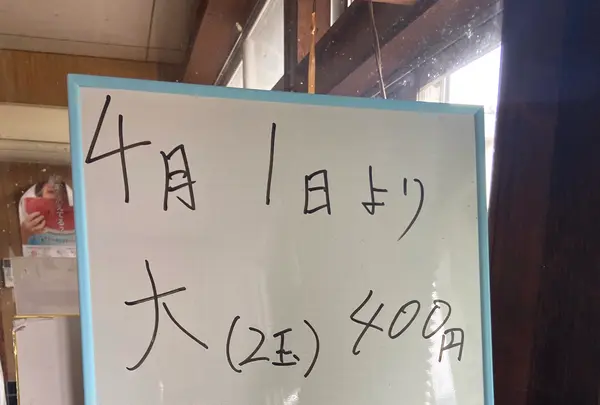 4月1日より
大(2玉)400円